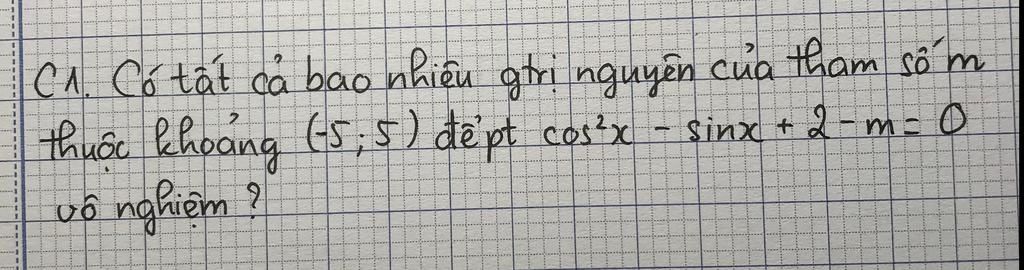 C1. Có tất cả bao nhiêu gtrị nguyên của tham số m
thuộc khoảng (-5; 5) để pt cos²x - sinx + 2 - m = 0
vô nghiệm?